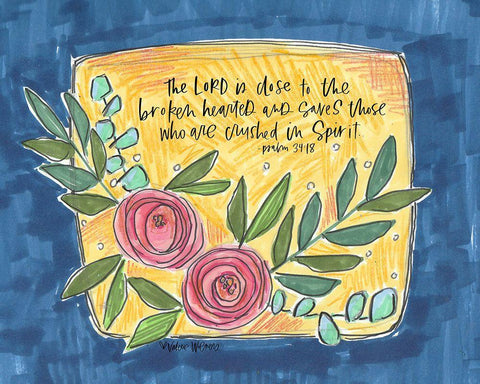 The LORD is close to the
broken hearted and saves those
who are crushed in Spirit.
-psalm 34:18